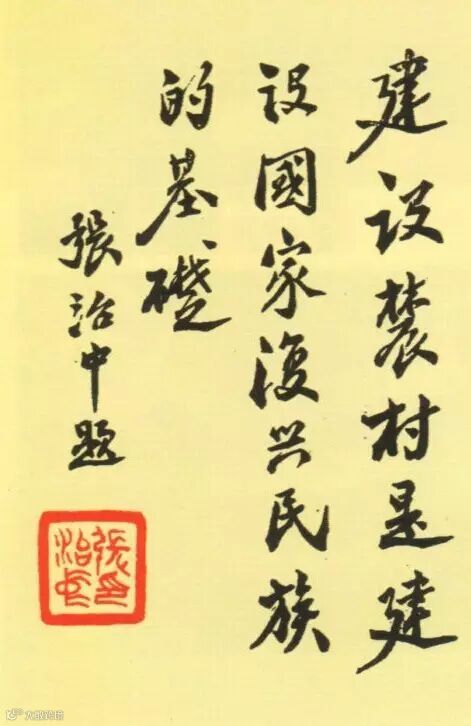 建设農村是建
设國家復兴民族
的基礎
張治中题
張治中印